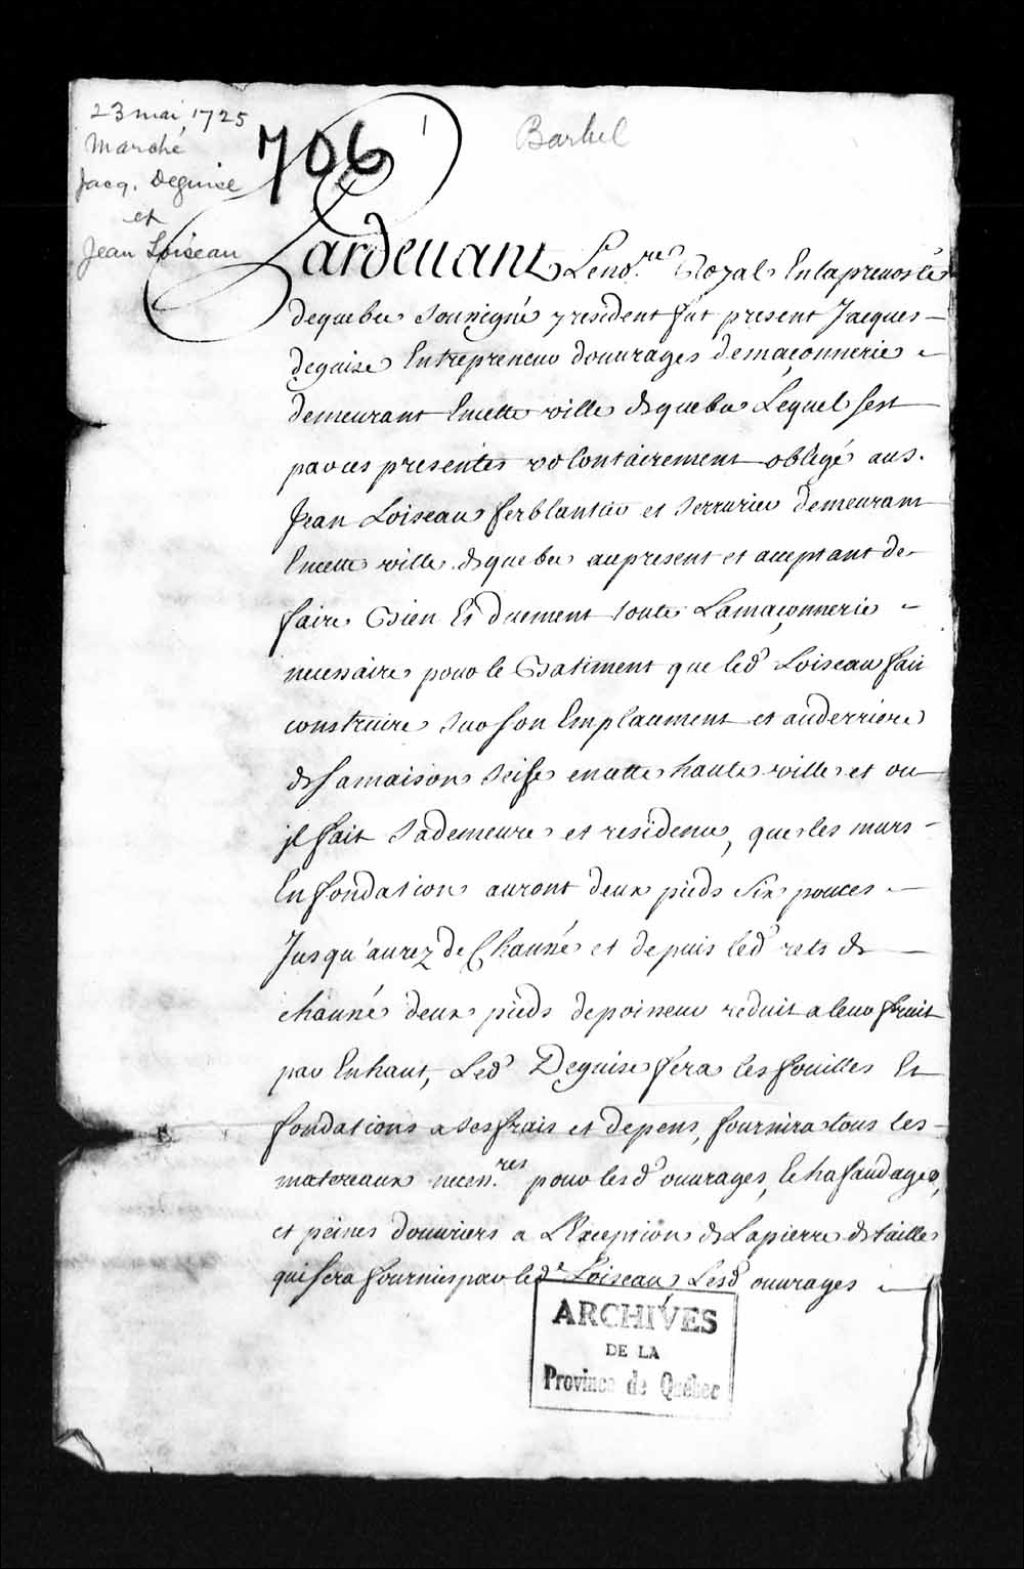 23 mai 1725
Marché
Jacq. Deguise
et
Jean Loiseau
706
1
Barbel
Pardevant Le no.re Royal En la prevosté
de quebec Soussigné y resident fut present Jacques
deguise Entrepreneur d'ouvrages de maçonnerie
demeurant En cette ville de quebec Lequel sest
par ces presentes volontairement obligé au s.
Jean Loiseau ferblantier et serrurier demeurant
En cette ville de quebec au present et acceptant de
faire Bien Et duement toute La maçonnerie
necessaire pour le Batiment que led. Loiseau fait
construire sur son Emplacement et au derriere
de sa maison seise en cette haute ville et ou
jl fait sa demeure et residence, que les murs
En fondation auront deux pieds six pouces
Jusqu'au rez de Chaussé et depuis led. rets de
chaussé deux pieds depoisseur reduit a leur fruit
par En haut, Led. Deguise fera les fouilles Et
fondations a ses frais et depens, fournira tous les
matereaux necess.res pour lesd. ouvrages, Echafaudages,
et peines douvriers a L'Exception de La pierre de taille
qui sera fournies par led. Loiseau Lesd. ouvrages
ARCHIVES
DE LA
Province de Québec